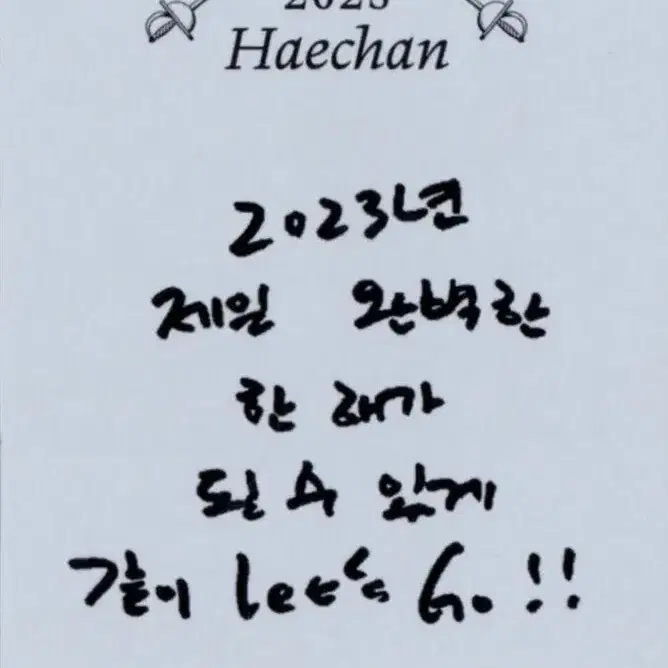 2023
Haechan
2023년
제일 완벽한
한 해가
될 수 있게
같이 let's Go!!